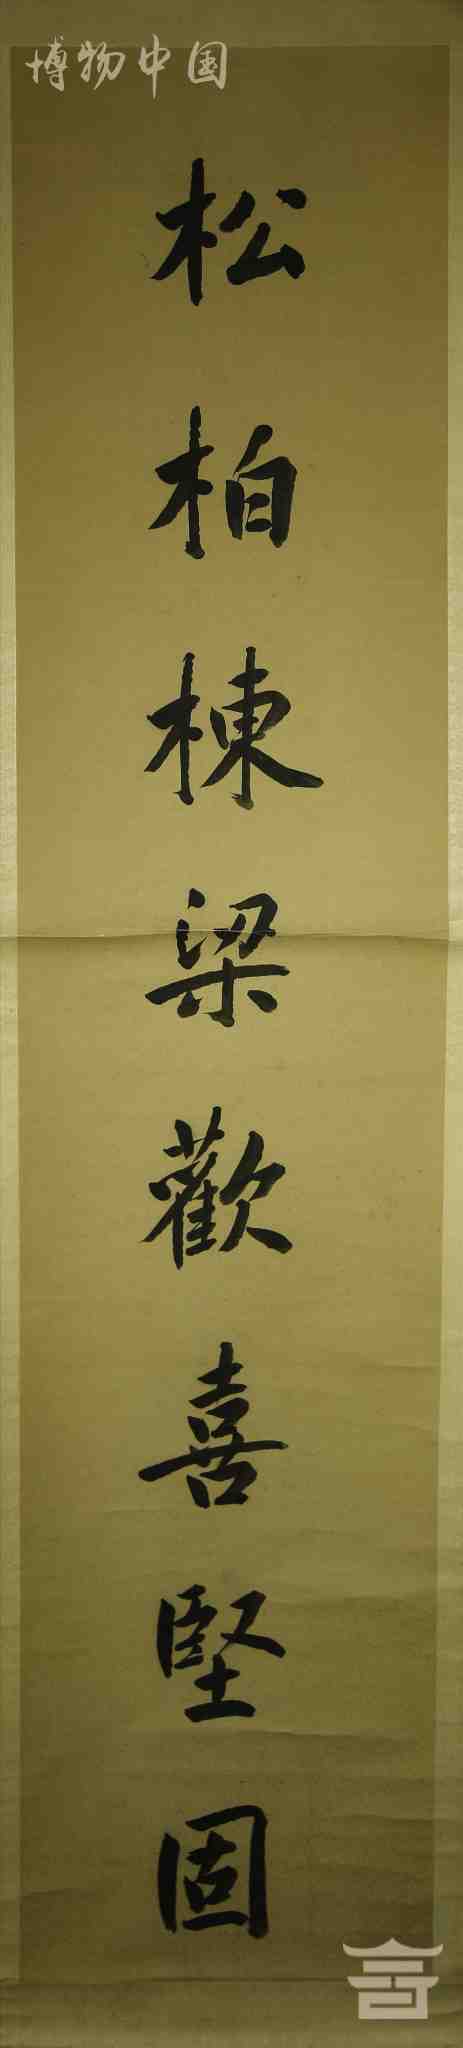 博物中国
松柏棟梁歡喜堅固